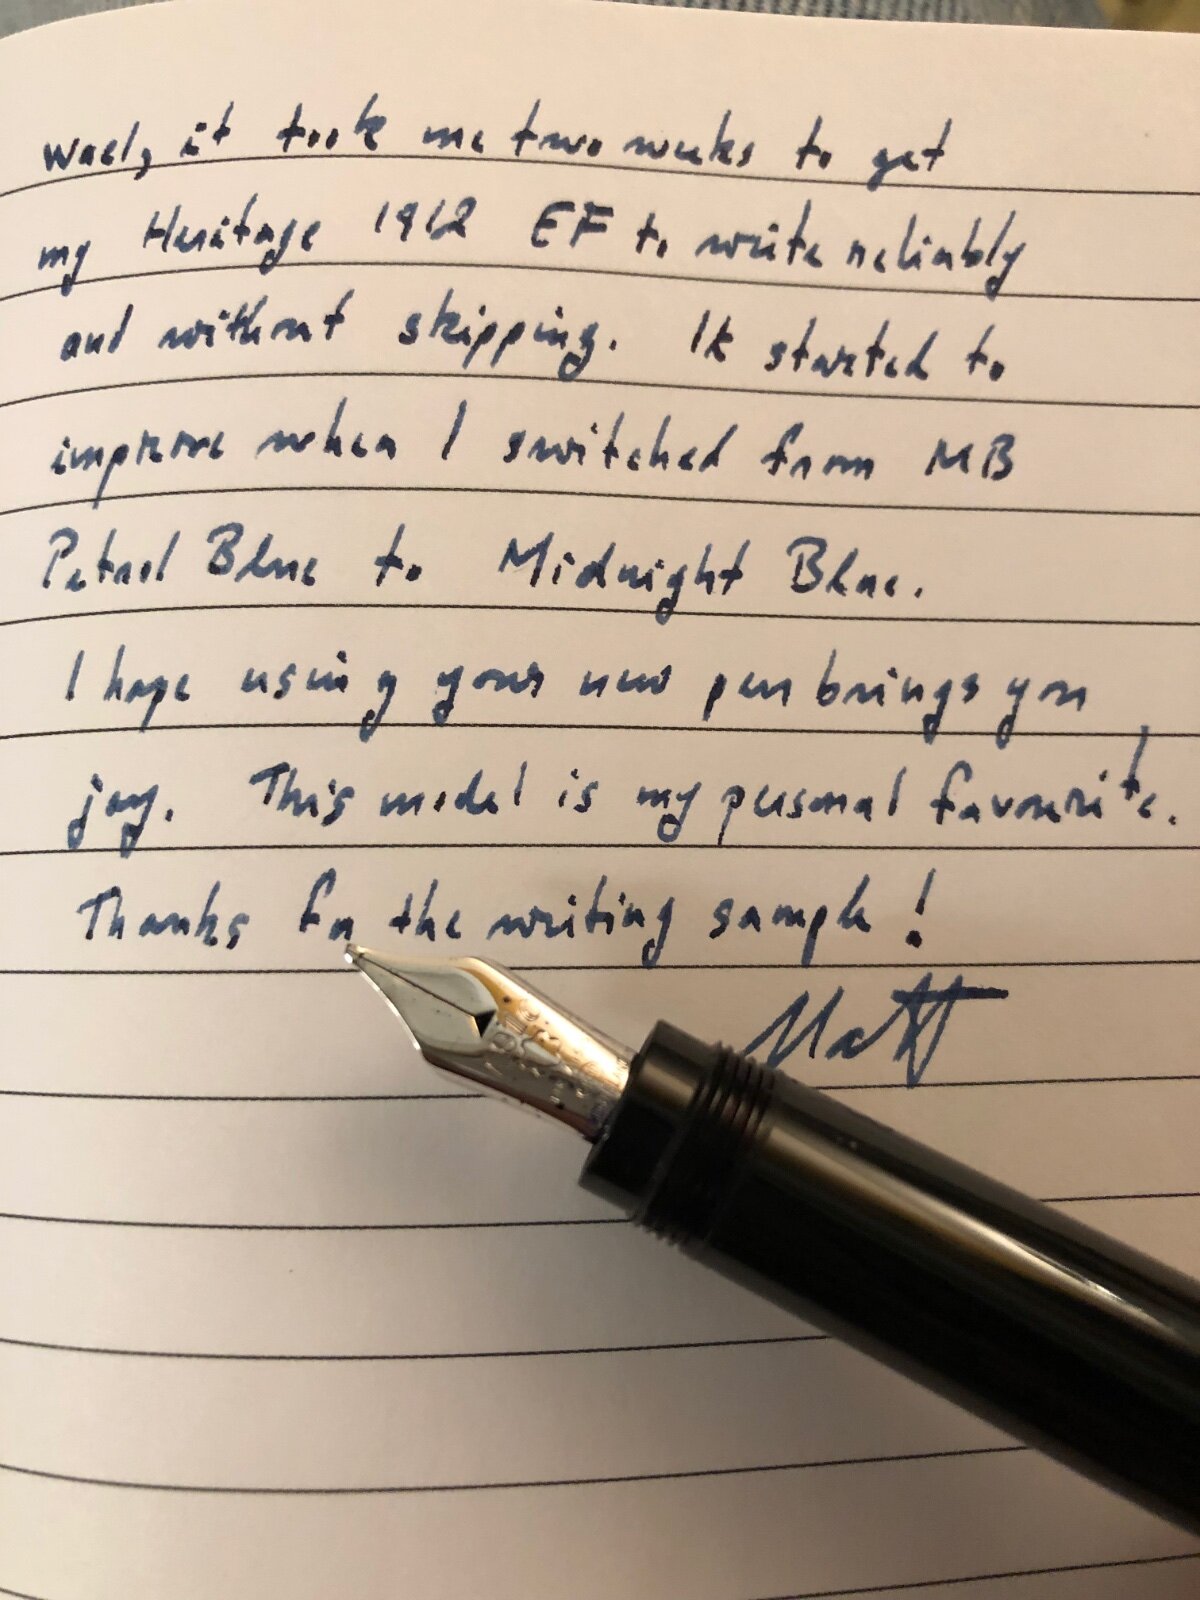 Wael, it took me two weeks to get
my Heritage 1912 EF to write reliably
and without skipping. It started to
improve when I switched from MB
Petrol Blue to Midnight Blue.
I hope using your new pen brings you
joy. This model is my personal favourite.
Thanks for the writing sample!
Matt